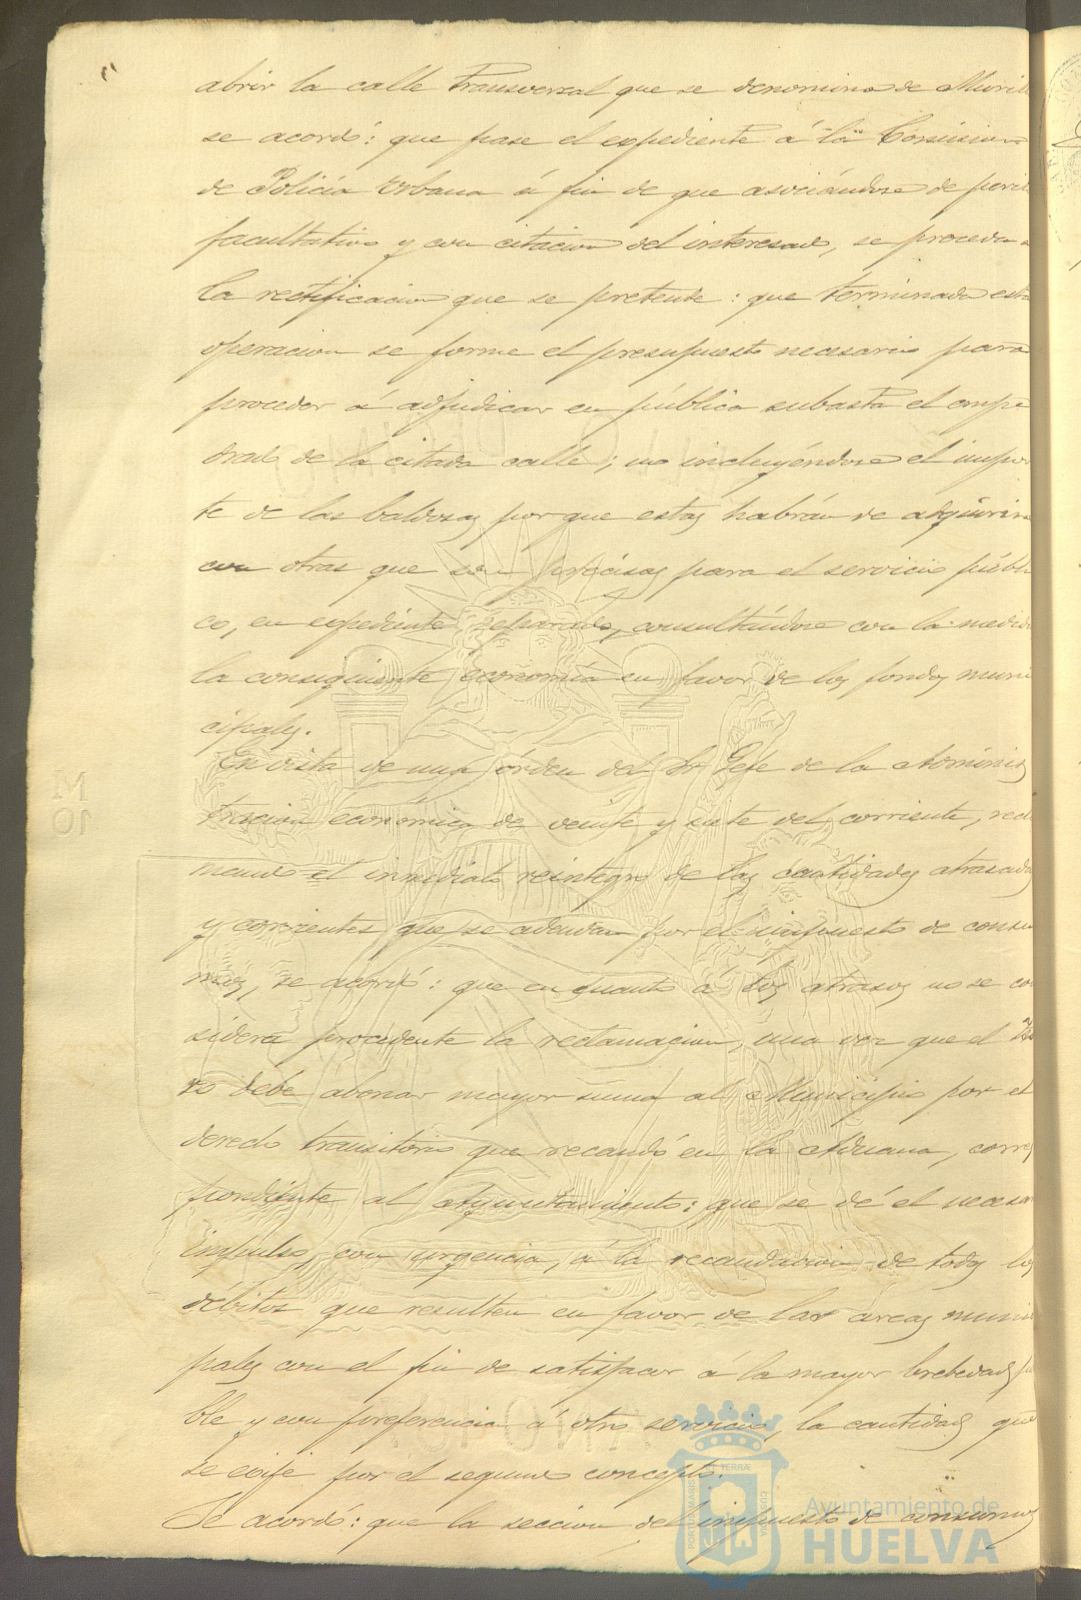 abrir la calle transversal que se denomina de Muri
se acordó: que pase el expediente á la Comision
de Policía Urbana á fin de que asociándose de peri
facultativo y con citacion del interesado, se proceda a
la rectificacion que se pretende: que terminada esta
operacion se forme el presupuesto necesario para
proceder á adjudicar en pública subasta el empe
drado de la citada calle; no incluyéndose el impor
te de las baldosas porque estas habrán de adquirirse
con otras que son precisas para el servicio públi
co, en expediente separado, consultándose con la medida
la consiguiente economía en favor de los fondos muni
cipales.
En vista de una órden del Sr Gefe de la Adminis
tracion económica de veinte y siete del corriente, recla
mando el inmediato reintegro de las cantidades atrasadas
y corrientes que se adeudan por el impuesto de consu
mos, se acordó: que en cuanto á los atrasos no se con
sidera procedente la reclamacion, una vez que el
ro debe abonar mayor suma al Municipio por el
derecho transitorio que recaudó en la Aduana, corres
pondiente al Ayuntamiento: que se dé el necesario
impulso, con urgencia, á la recaudacion de todos los
débitos que resulten en favor de las arcas munici
pales con el fin de satisfacer á la mayor brebedad posi
ble y con preferencia á otro servicio, la cantidad que
se exije por el segundo concepto.
Se acordó: que la seccion del impuesto de consumos
Ayuntamiento de
HUELVA